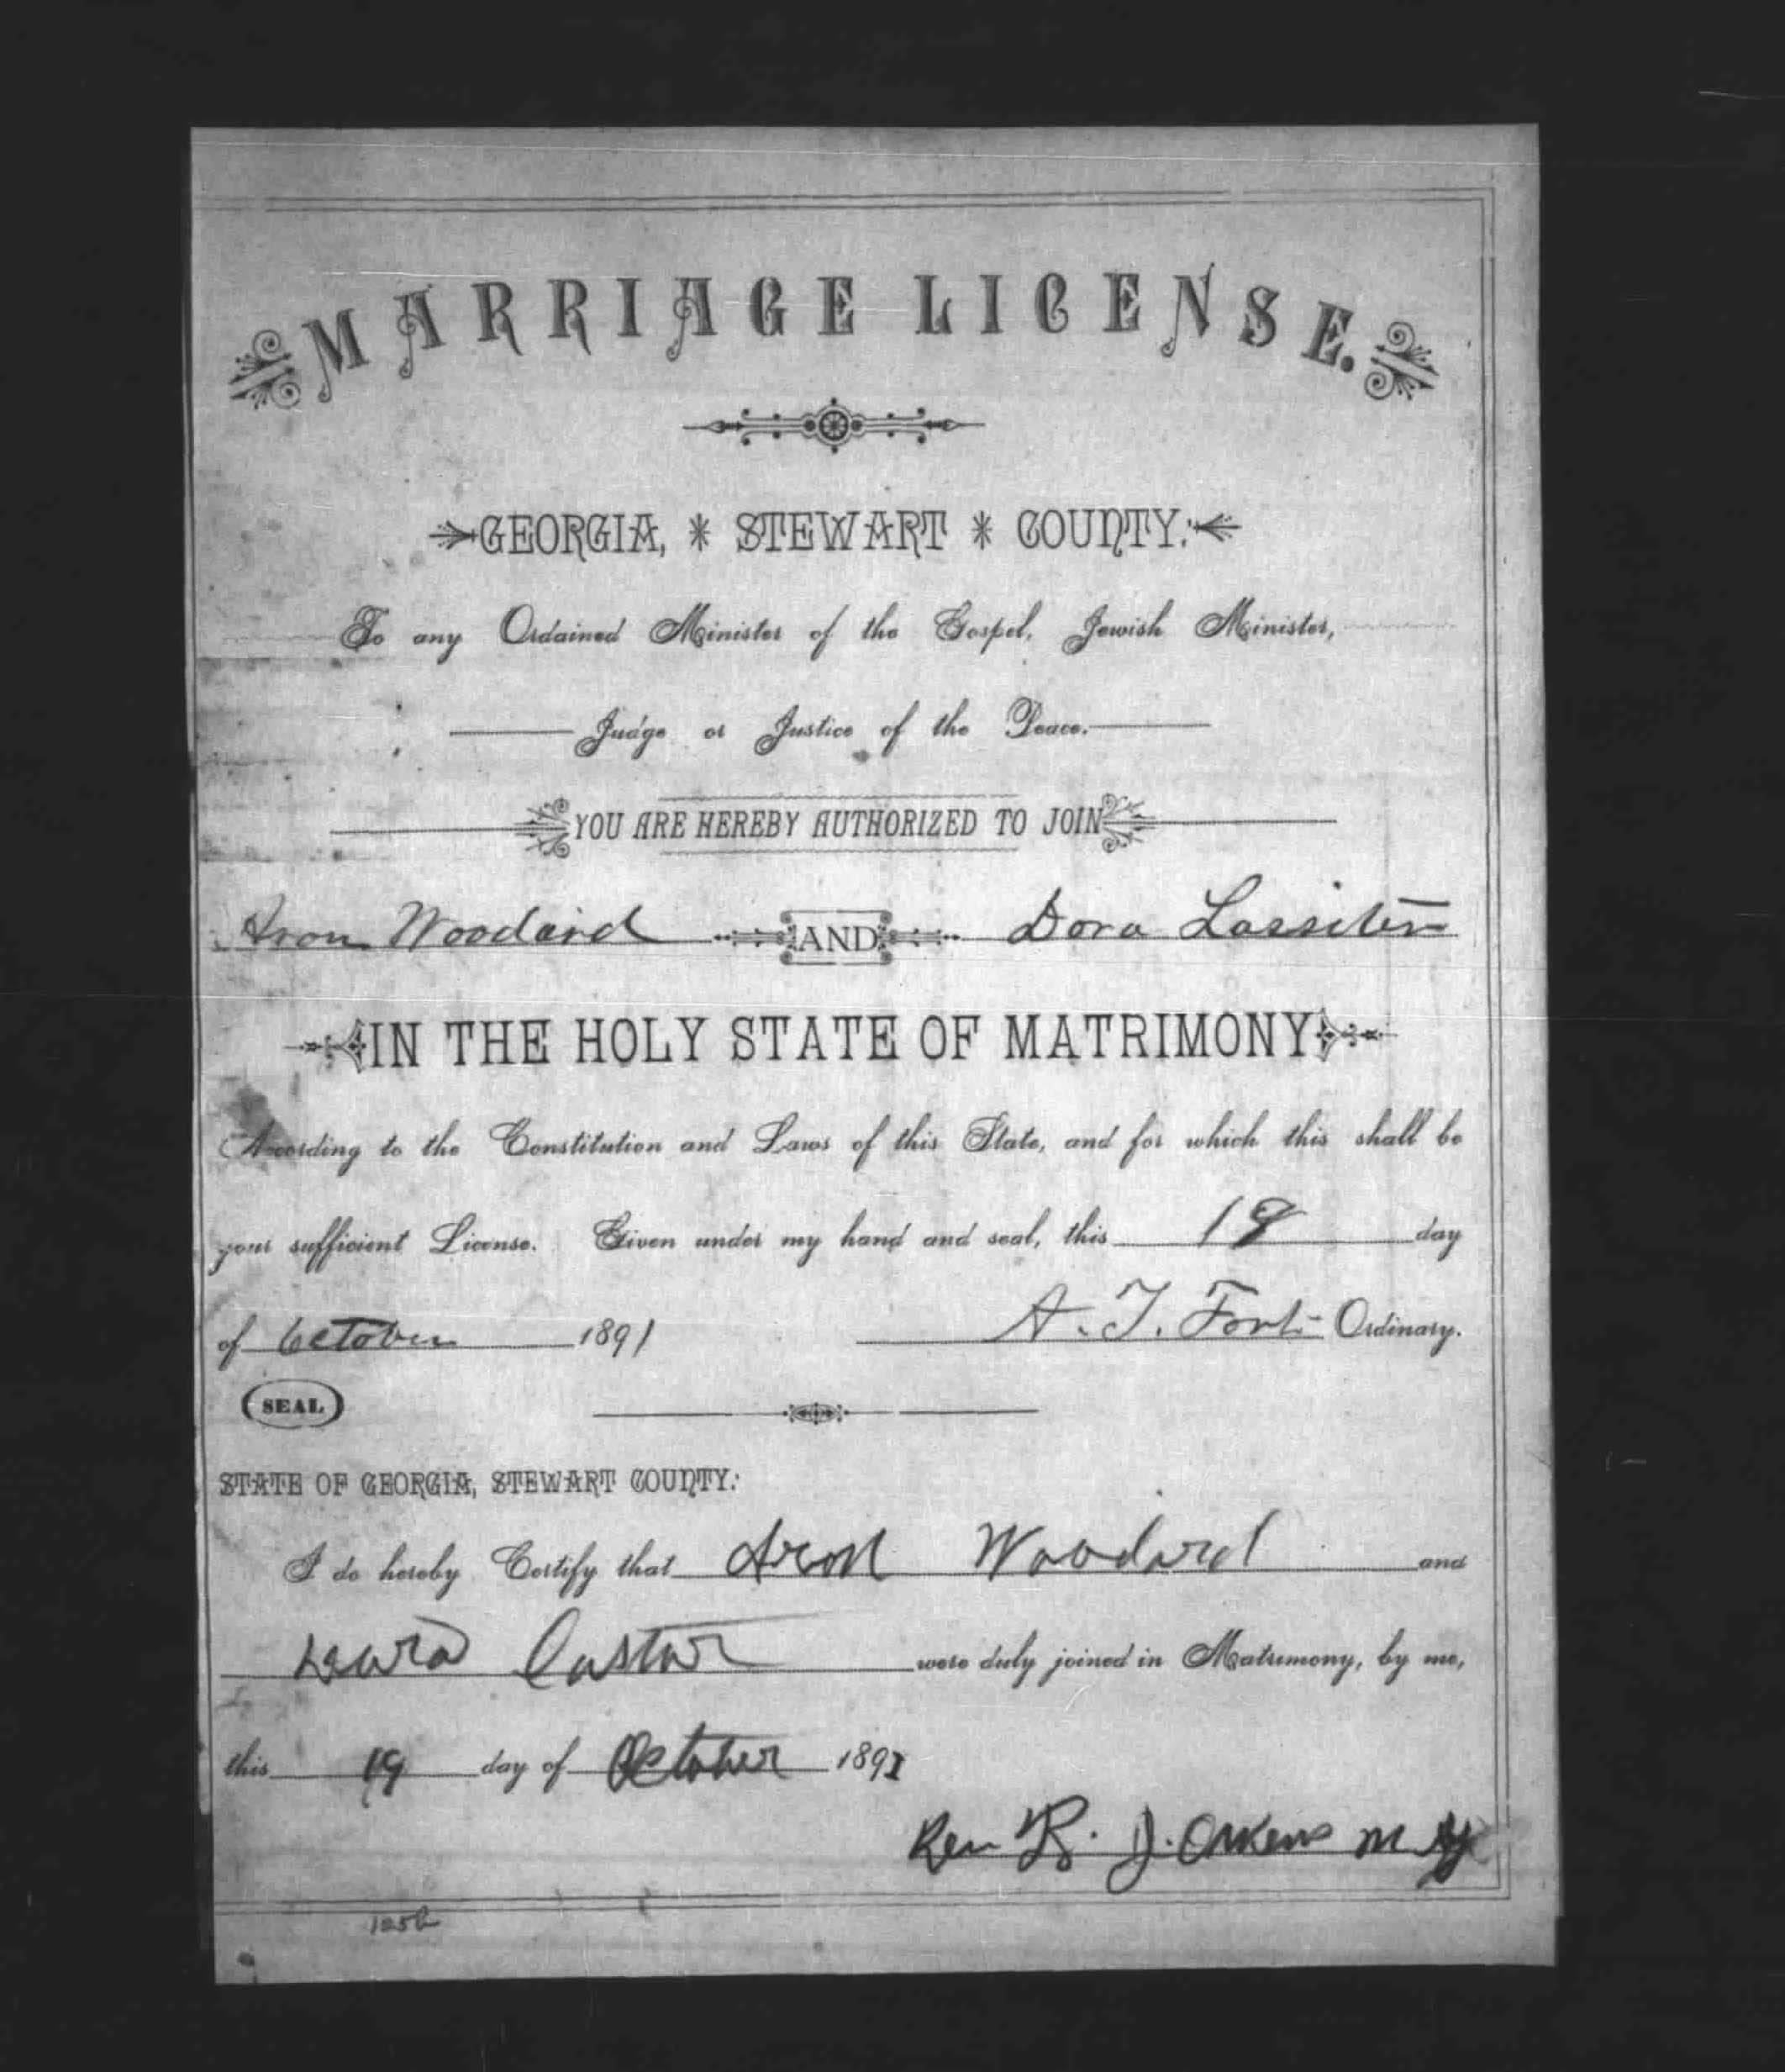 MARRIAGE LICENSE.
GEORGIA, * STEWART * COUNTY:
To any Ordained Minister of the Gospel, Jewish Minister,
Judge or Justice of the Peace.
YOU ARE HEREBY AUTHORIZED TO JOIN
Aron Woodard AND Dora Lassiter
IN THE HOLY STATE OF MATRIMONY
According to the Constitution and Laws of this State, and for which this shall be
your sufficient License. Given under my hand and seal, this day
of October 1891 A. T. Fort Ordinary.
SEAL
STATE OF GEORGIA, STEWART COUNTY:
I do hereby Certify that Aron Woodard and
were duly joined in Matrimony, by me,
this 19 day of October 1891
Rev R. J. M G